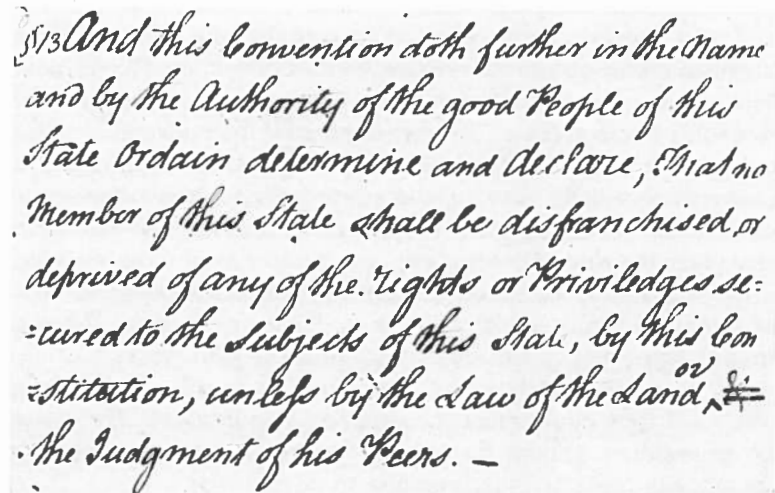 §13 And this Convention doth further in the Name
and by the Authority of the good People of this
State Ordain determine and declare, That no
Member of this State shall be disfranchised or
deprived of any of the rights or Priviledges se-
-cured to the Subjects of this State, by this Con
-stitution, unless by the Law of the Land or
the Judgment of his Peers. —